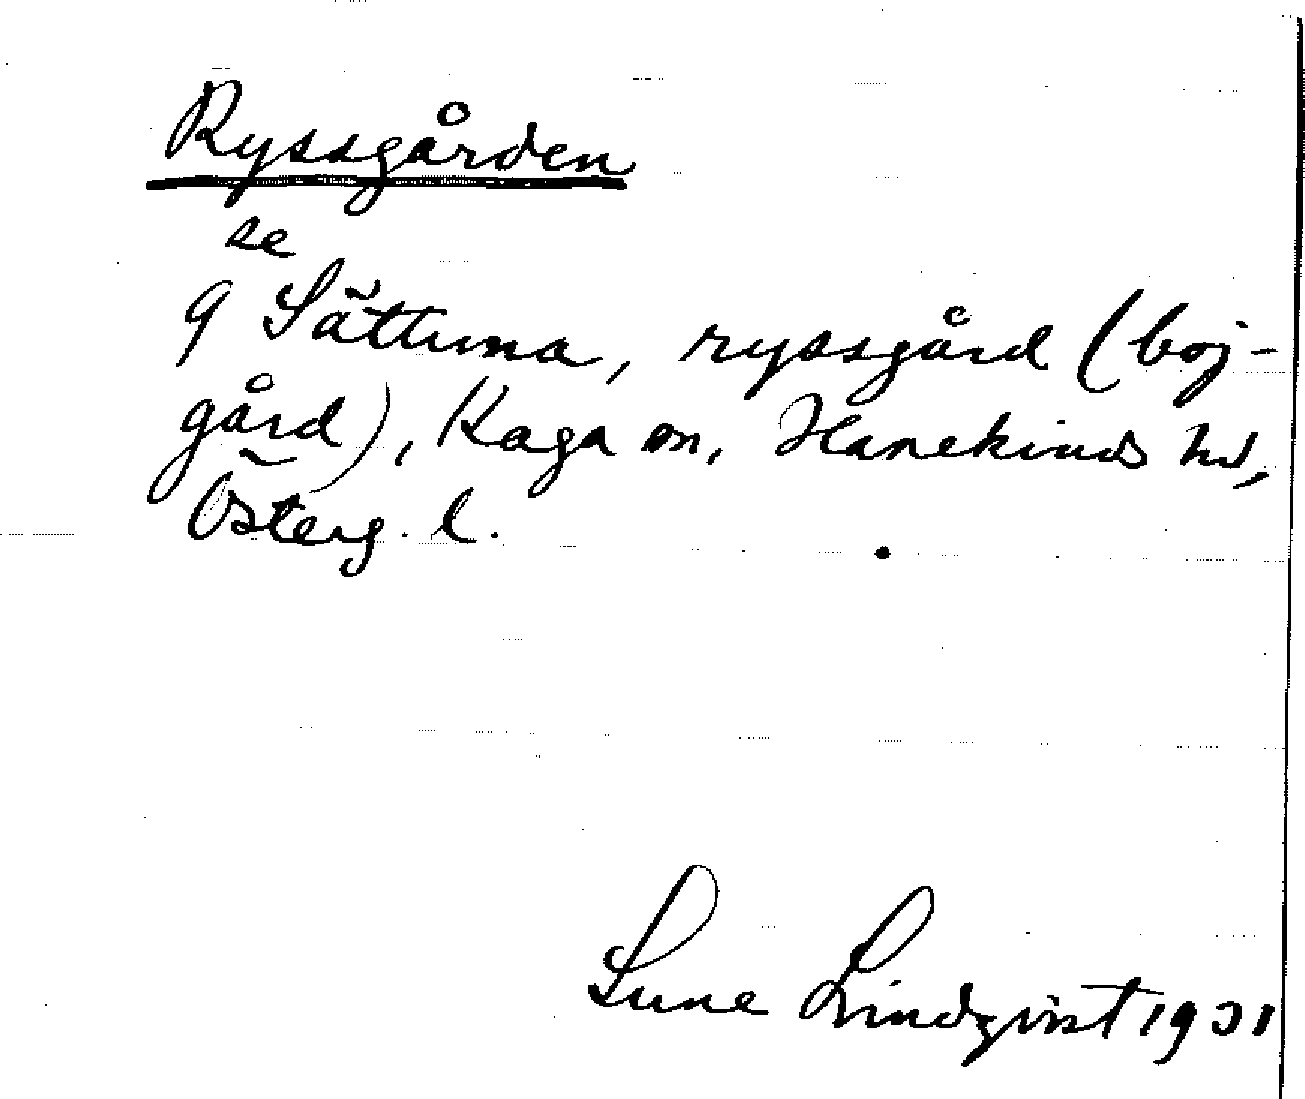 Ryssgården
se
9 Sättuna, ryssgård (boj-
gård), Kaga sn, Hanekinds hd,
Österg. l.
Sune Lindqvist 1931